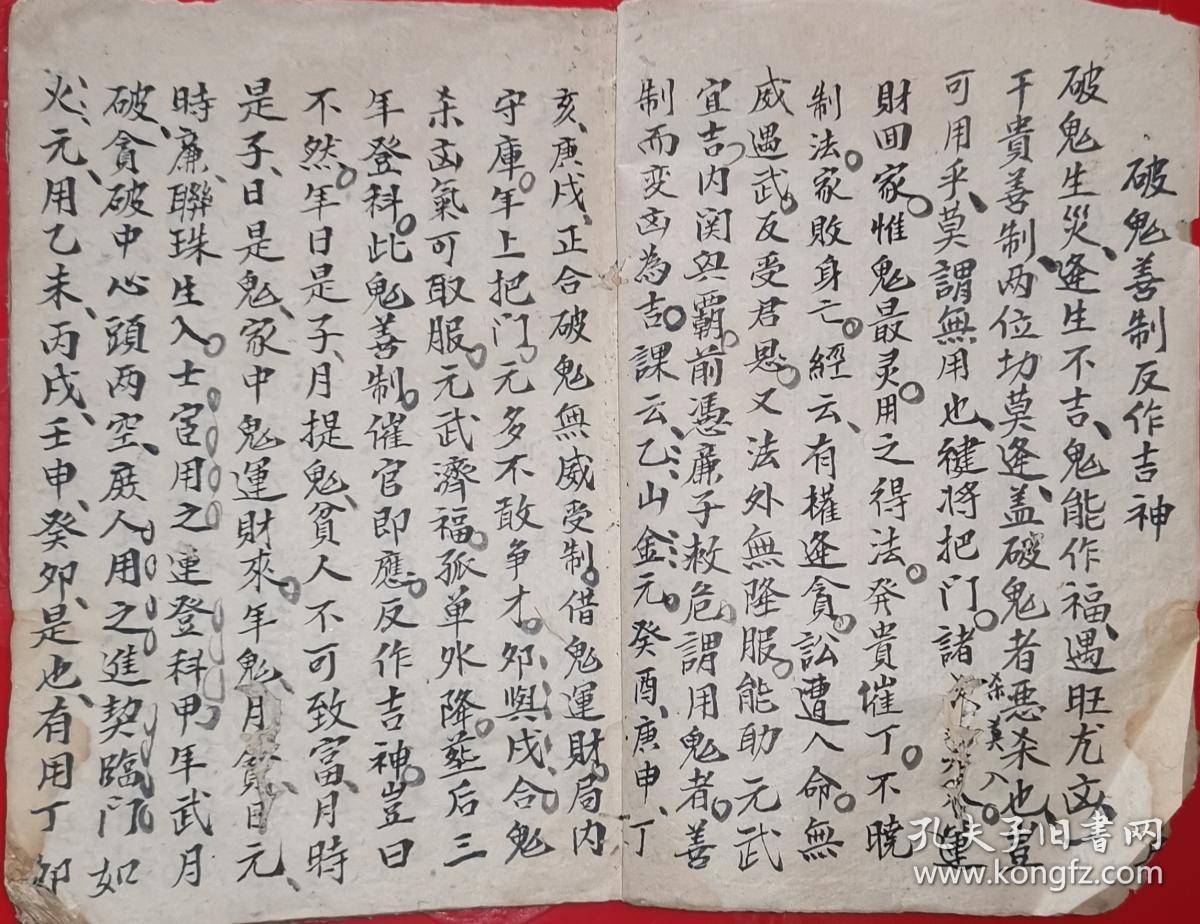 破鬼善制反作吉神
破鬼生災、逢生不吉、鬼能作福、遇旺尤凶、
干貴善制、两位切莫逢、盖破鬼者惡杀也、豈
可用乎、莫謂無用也、犍将把门。諸杀莫入。運
財囬家。惟鬼最灵。用之得法。癸貴催丁。不曉
制法。家敗身亡。經云、有權逢貪。訟遭入命。無
威遇武。反受君恩。又法外無降服。能助元武
宜吉。内関與覇。前憑廉子救危。謂用鬼者。善
制而变凶為吉。課云、乙山金元。癸酉、庚申、丁
亥、庚戌、正合破鬼無威受制。借鬼運財。局内
守庫。年上把门。元多不敢争才。夘與戌合鬼
杀凶氣可取服。元武濟福。孤单外降。塟后三
年登科。此鬼善制。催官即應。反作吉神。豈曰
不然。年日是子、月提鬼、貧人不可致富、月時
是子、日是鬼、家中鬼運財來。年鬼、月貪日元、
時廉、聯珠生入。士宦用之連登科甲。年武月
破、貪破中心頭两空、庶人用之進契臨门。如
火元、用乙未、丙戌、壬申、癸夘、是也、有用丁夘
孔夫子旧書网
www.kongfz.com